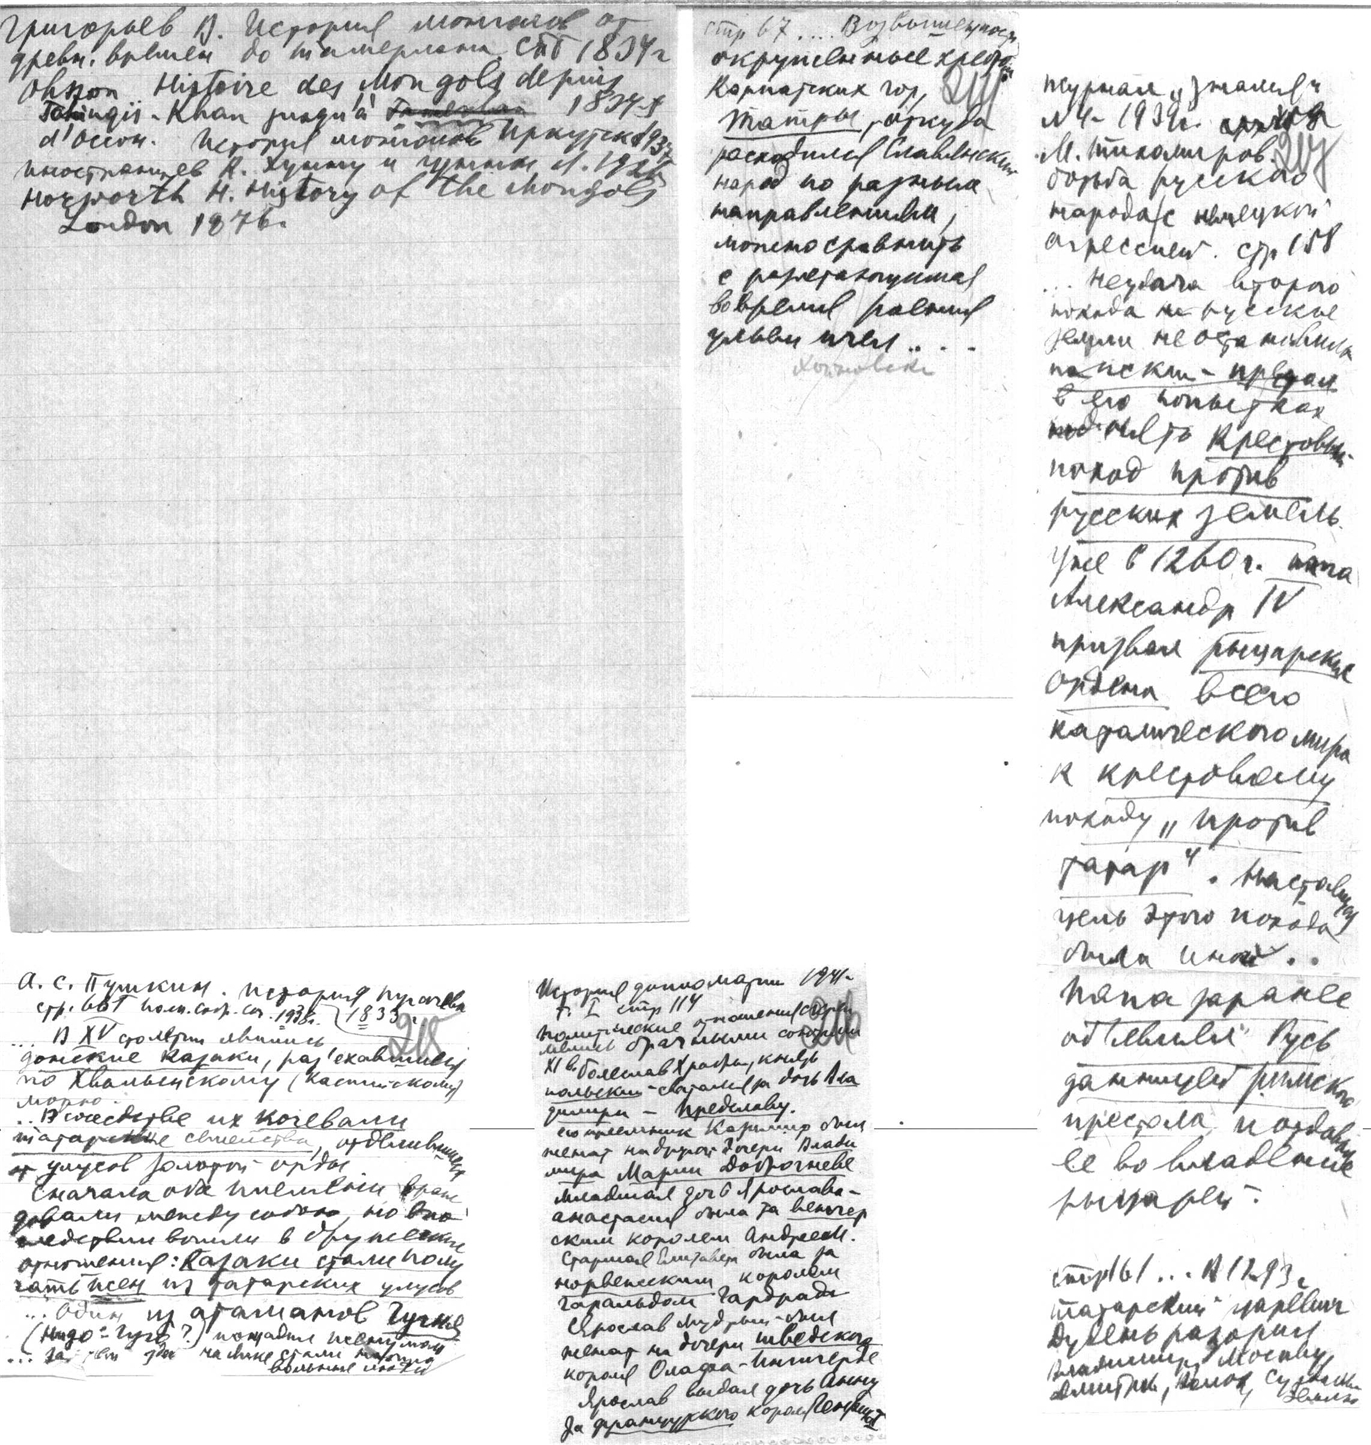 Григорьев В. История монголов от
древн. времен до тамерлана СПБ 1834 г
Ohsson Histoire des Mongols depuis
Tchingis-Khan jusqu'à 1834-5
д'Оссон. История монголов Иркутск 1937
иностранцев К. Хунну и гунны Л. 1926
Howorth H. History of the Mongols
London 1876.
стр 67 .... Возвышенности
округленные хребты
Карпатских гор,
Татры, откуда
расходился Славянский
народ по разным
направлениям,
можно сравнить
с разлетающимся
во время роения
ульем пчел ....
журнал „Знамя"
N 4 - 1939 г.
М. Тихомиров. 207
борьба русского
народа с немецкой
агрессией. стр 158
... Неудача второго
похода на русские
земли не остановила
папский престол
в его попытках
поднять крестовый
поход против
русских земель.
Уже в 1260 г. папа
Александр IV
призвал рыцарские
ордена всего
католического мира
к крестовому
походу „против
татар". Настоящая
цель этого похода
была иной..
Папа заранее
об'явил Русь
данницей римского
престола и отдавал
ее во владение
рыцарей.
стр 161 ... В 1293 г
татарский царевич
Дудень разорил
Владимир, Москву,
Дмитров, Волок,
А. С. Пушкин. история Пугачева
стр. полн. собр. соч. 1938 г. (1833 г. 218
... В XV столетии явились
донские казаки, раз'езжавшие
по Хвалынскому (Каспийскому)
морю.
... В соседстве их кочевали
татарские семейства, отделившиеся
от улусов Золотой орды.
Сначала оба племени враж
довали между собою, но впо
следствии вошли в дружеские
отношения: Казаки стали полу
чать жен из татарских улусов
... Один из атаманов Гугня
вольные люди
История дипломатии 1941 г.
т. I стр 114
политические отношения скреп
лялись брачными союзами
XI в. Болеслав Храбрый, князь
польский сватался за дочь Вла
димира - Предславу.
его преемник Казимир был
женат на другой дочери Влади
мира Марии Доброгневе
младшая дочь Ярослава -
Анастасия была за венгер
ским королем Андреем.
Старшая Елизавета была за
норвежским королем
Гаральдом Гардрада
Ярослав Мудрый был
женат на дочери шведского
короля Олафа - Ингигерде
Ярослав выдал дочь Анну
за французского короля Генриха I